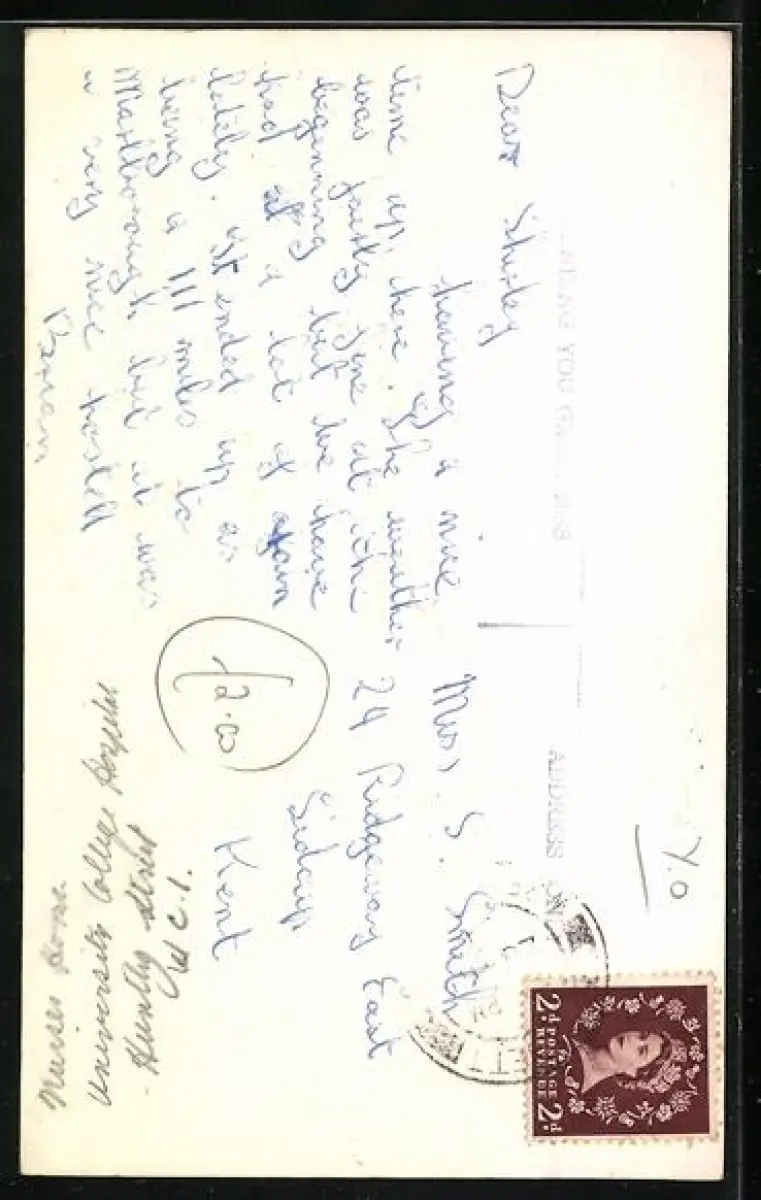 Dear Shirley
having a nice
time up here. The weather
was fairly fine at the
beginning but we have
had a lot of again
lately. It ended up as
being a 111 miles to
Marlborough but it was
a very nice hostell
ADDRESS
Miss. S. Smith
24 Ridgeway East
Sidcup
Kent
Nurses Home.
University College Hospital
Huntly Street
W C.1.
2d POSTAGE REVENUE 2d